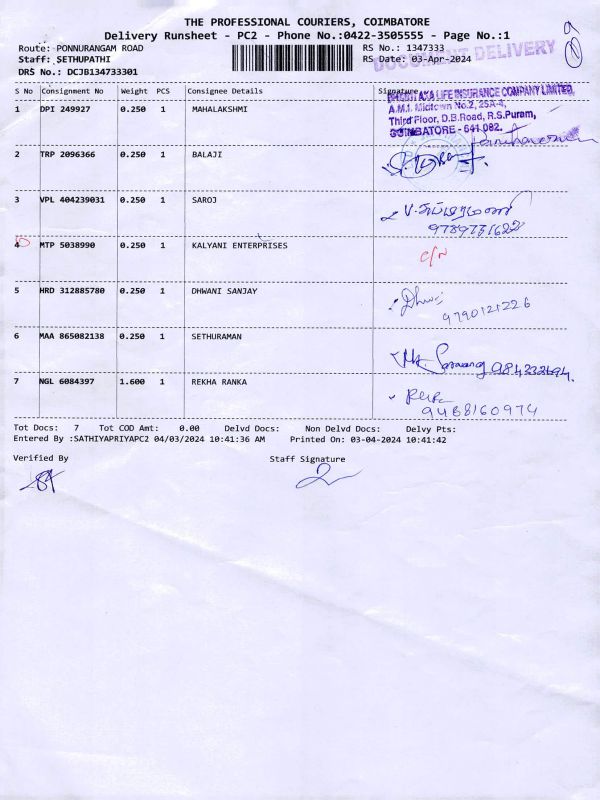 THE PROFESSIONAL COURIERS, COIMBATORE
Delivery Runsheet - PC2 - Phone No.:0422-3505555 - Page No.:1
Route: PONNURANGAM ROAD RS No.: 1347333
Staff: SETHUPATHI RS Date: 03-Apr-2024
DRS No.: DCJB134733301
DOCUMENT DELIVERY
S No Consignment No Weight PCS Consignee Details Signature
1 DPI 249927 0.250 1 MAHALAKSHMI
AXA LIFE INSURANCE COMPANY LIMITED,
A.M.I. Midtown No.2, 25A-4,
Third Floor, D.B.Road, R.S.Puram,
COIMBATORE - 641 002.
2 TRP 2096366 0.250 1 BALAJI
3 VPL 404239031 0.250 1 SAROJ
4 MTP 5038990 0.250 1 KALYANI ENTERPRISES
C/N
5 HRD 312885780 0.250 1 DHWANI SANJAY
9790121226
6 MAA 865082138 0.250 1 SETHURAMAN
7 NGL 6084397 1.600 1 REKHA RANKA
9488160974
Tot Docs: 7 Tot COD Amt: 0.00 Delvd Docs: Non Delvd Docs: Delvy Pts:
Entered By :SATHIYAPRIYAPC2 04/03/2024 10:41:36 AM Printed On: 03-04-2024 10:41:42
Verified By Staff Signature